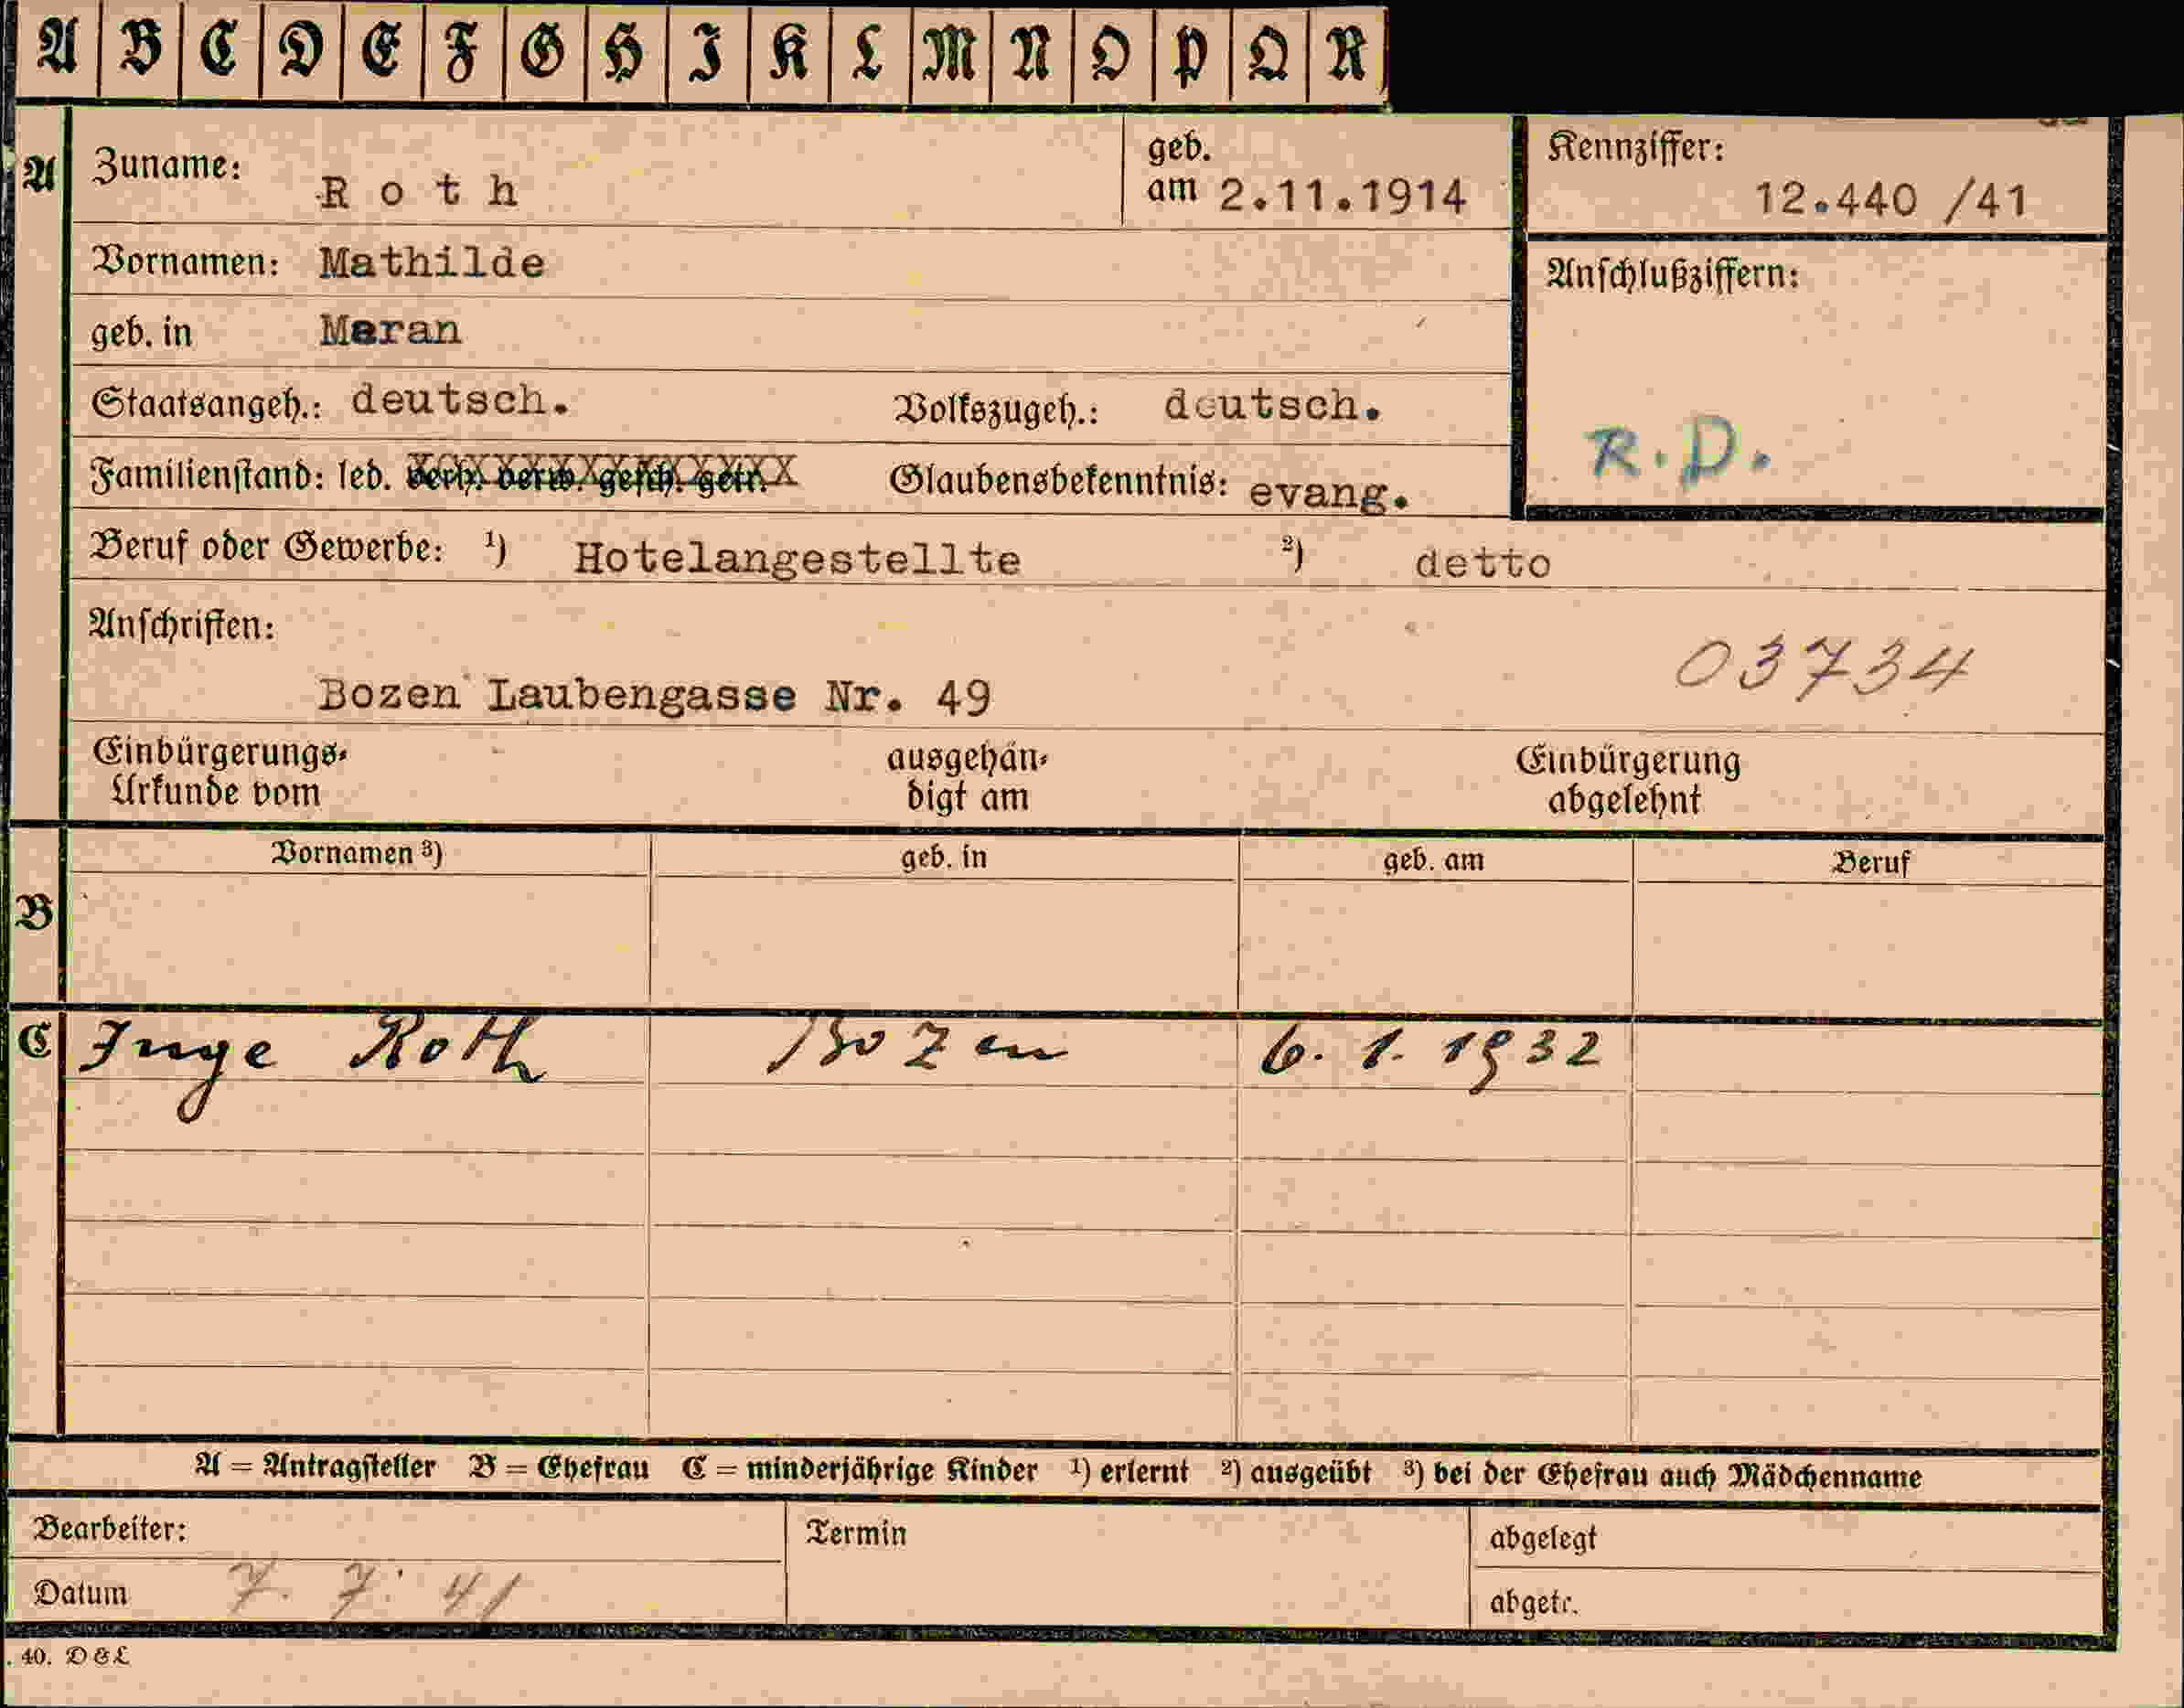 A B C D E F G H I K L M N O P Q R
A Zuname: Roth geb. am 2.11.1914 Kennziffer: 12.440 /41
Vornamen: Mathilde
Anschlußziffern:
geb. in Meran
Staatsangeh.: deutsch. Volkszugeh.: deutsch.
R.D.
Familienstand: led. verh. verw. gesch. getr. Glaubensbekenntnis: evang.
Beruf oder Gewerbe: 1) Hotelangestellte 2) detto
Anschriften:
03734
Bozen Laubengasse Nr. 49
Einbürgerungs- ausgehän- Einbürgerung
Urkunde vom digt am abgelehnt
Vornamen 3) geb. in geb. am Beruf
B
C Inge Roth Bozen 6. 1. 1932
A = Antragsteller B = Ehefrau C = minderjährige Kinder 1) erlernt 2) ausgeübt 3) bei der Ehefrau auch Mädchenname
Bearbeiter: Termin abgelegt
Datum 7. 7. 41 abgetr.
. 40. D & L